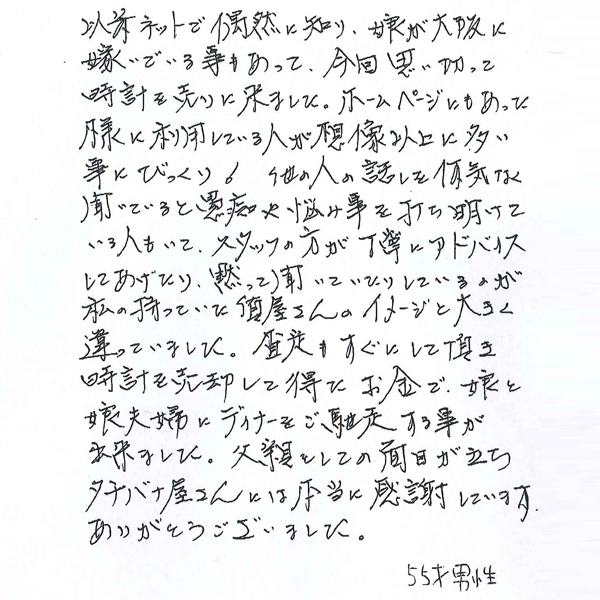 以前ネットで偶然に知り、娘が大阪に
嫁いでいる事もあって、今回思い切って
時計を売りに来ました。ホームページにもあった
様に利用している人が想像以上に多い
事にびっくり！ 他の人の話しを何気なく
聞いていると愚痴や悩み事を打ち明けて
いる人もいて、スタッフの方が丁寧にアドバイス
してあげたり、黙って聞いていたりしているのが
私の持っていた質屋さんのイメージと大きく
違っていました。査定もすぐにして頂き
時計を売却して得たお金で、娘と
娘夫婦にディナーをご馳走する事が
出来ました。父親としての面目が立ち
タチバナ屋さんには本当に感謝しています。
ありがとうございました。
55才男性